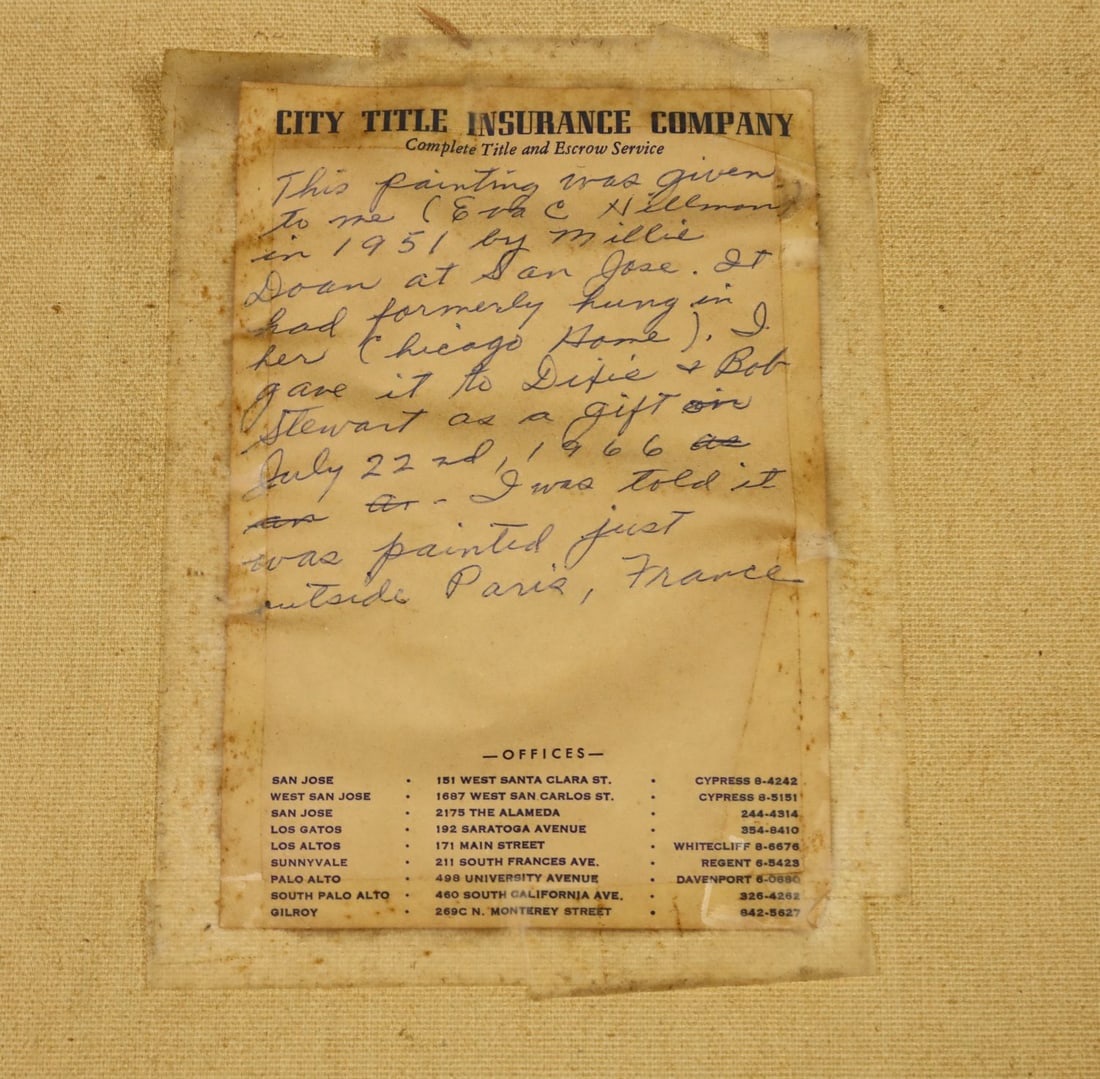 CITY TITLE INSURANCE COMPANY
Complete Title and Escrow Service
This painting was given
to me (Eva C Hillman)
in 1951 by Millie
Doan at San Jose. It
had formerly hung in
her (Chicago Home). I
gave it to Dixie & Bob
Stewart as a gift on
July 22nd, 1966 as
an ar - I was told it
was painted just
outside Paris, France
—OFFICES—
SAN JOSE • 151 WEST SANTA CLARA ST. • CYPRESS 8-4242
WEST SAN JOSE • 1687 WEST SAN CARLOS ST. • CYPRESS 8-5151
SAN JOSE • 2175 THE ALAMEDA • 244-4314
LOS GATOS • 192 SARATOGA AVENUE • 354-8410
LOS ALTOS • 171 MAIN STREET • WHITECLIFF 8-6676
SUNNYVALE • 211 SOUTH FRANCES AVE. • REGENT 6-5423
PALO ALTO • 498 UNIVERSITY AVENUE • DAVENPORT 6-0680
SOUTH PALO ALTO • 460 SOUTH CALIFORNIA AVE. • 326-4262
GILROY • 269C N. MONTEREY STREET • 842-5627